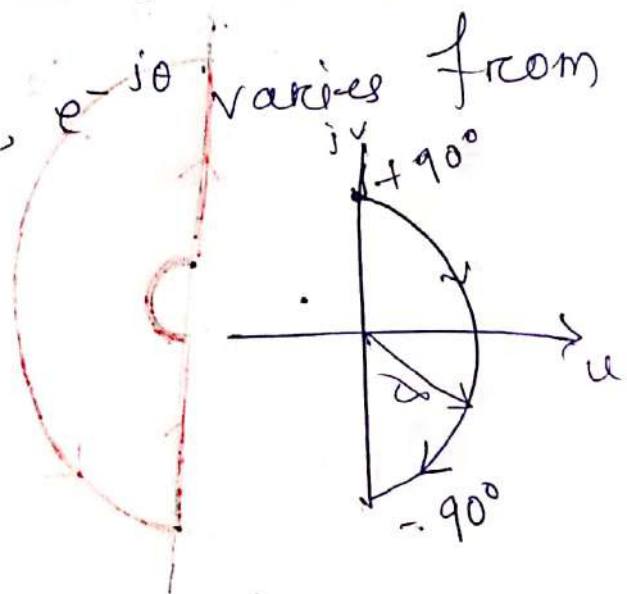 , e^-jθ varies from
jv
+90°
∞
u
-90°